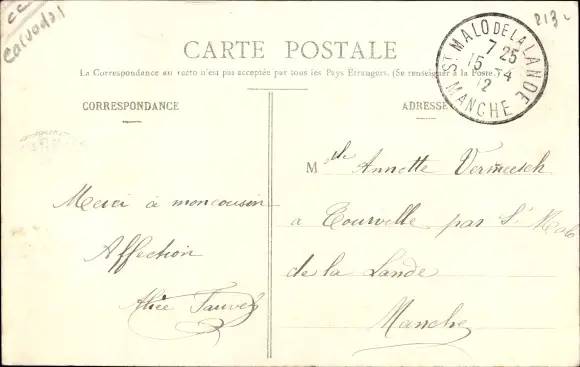 cc
Calvados
813
CARTE POSTALE
La Correspondance au recto n'est pas acceptée par tous les Pays Etrangers. (Se renseigner à la Poste.)
ST MALO DE LA LANDE
7 25
15 -4
12
MANCHE
CORRESPONDANCE
ADRESSE
Merci à mon cousin
Affection
Alice Fauvel
Mlle Annette Vermeesch
a Tourville par St Malo
de la Lande
Manche